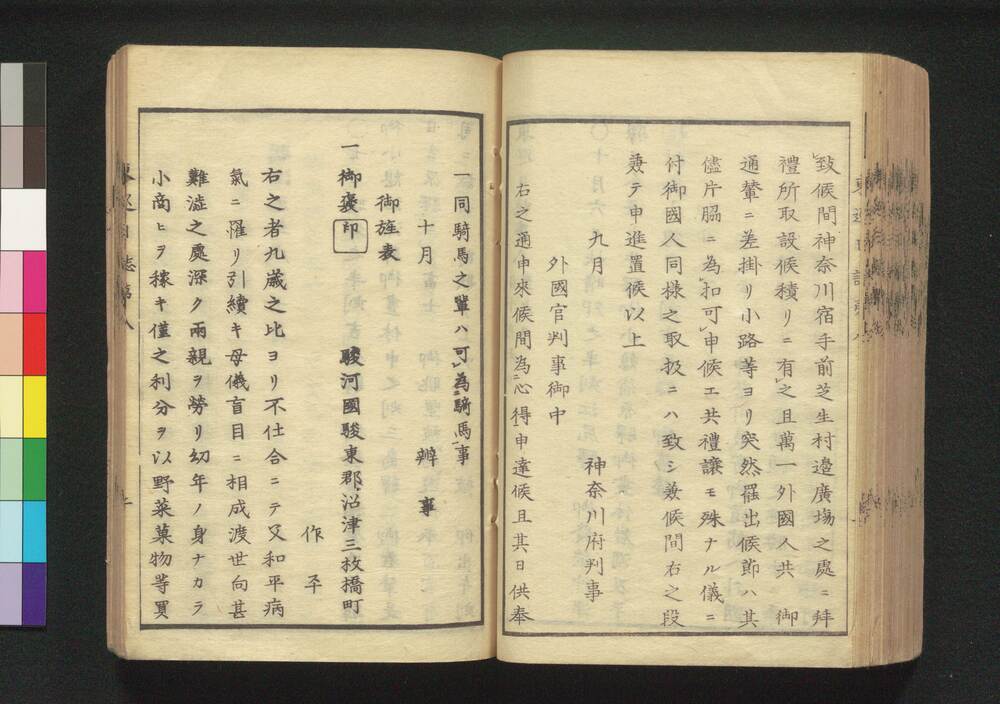 致候間神奈川宿手前芝生村邉廣場之處ニ拜
禮所取設候積リニ有之且萬一外國人共御
通輦ニ差掛リ小路等ヨリ突然罷出候節ハ其
儘片脇ニ為扣可申候エ共禮讓モ殊ナル儀ニ
付御國人同様之取扱ニハ致シ兼候間右之段
兼テ申進置候以上
九月 神奈川府判事
外國官判事御中
右之通申來候間為心得申達候且其日供奉
一同騎馬之輩ハ可為騎馬事
十月 辨事
御旌表
一御褒印 駿河國駿東郡沼津三枚橋町
作平
右之者九歳之比ヨリ不仕合ニテ父和平病
氣ニ罹リ引續キ母儀盲目ニ相成渡世向甚
難澁之處深ク兩親ヲ勞リ幼年ノ身ナカラ
小商ヒヲ稼キ僅之利分ヲ以野菜菓物等買
東巡日誌第八